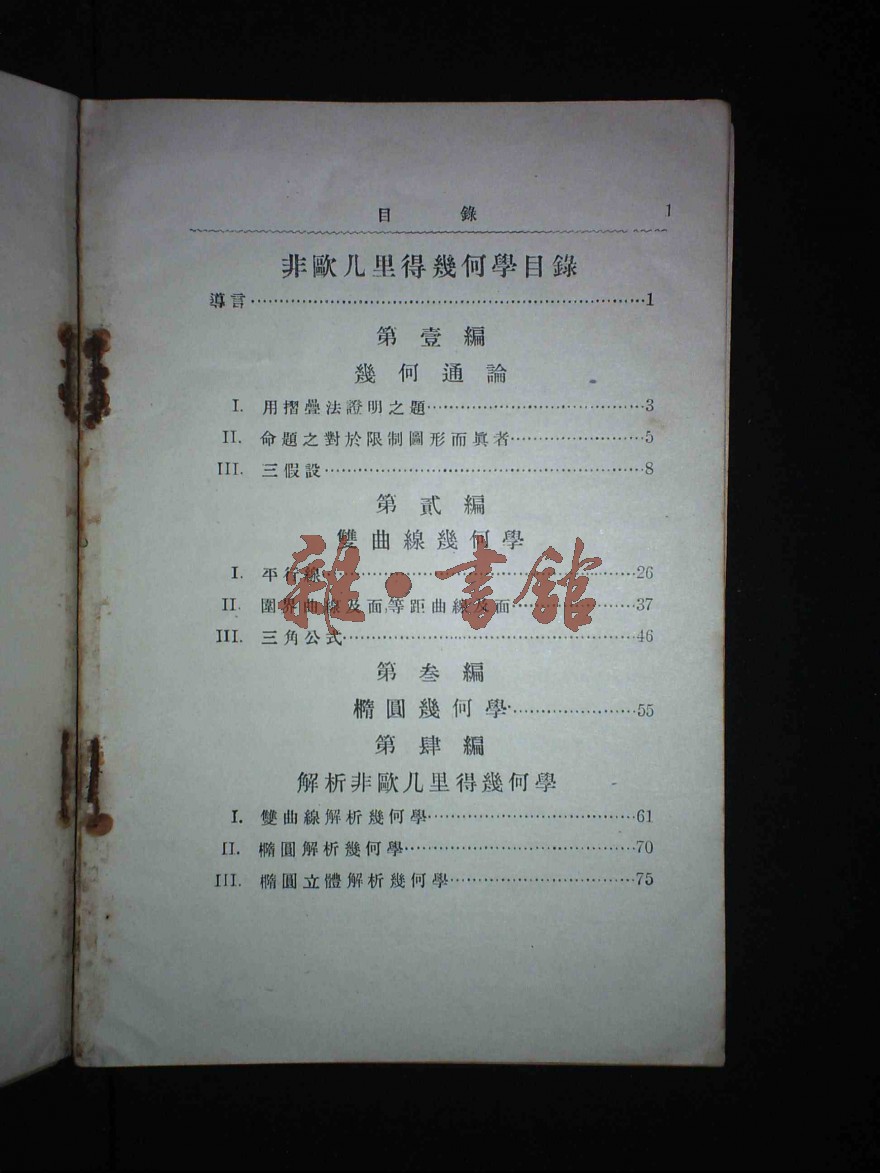 目 錄 1
非歐几里得幾何學目錄
導言……1
第壹編
幾何通論
I. 用摺疊法證明之題……3
II. 命題之對於限制圖形而眞者……5
III. 三假設……8
第貳編
雙曲線幾何學
I. 平行線……26
II. 圍界曲線及面,等距曲線及面……37
III. 三角公式……46
第叁編
橢圓幾何學……55
第肆編
解析非歐几里得幾何學
I. 雙曲線解析幾何學……61
II. 橢圓解析幾何學……70
III. 橢圓立體解析幾何學……75
雜·書館